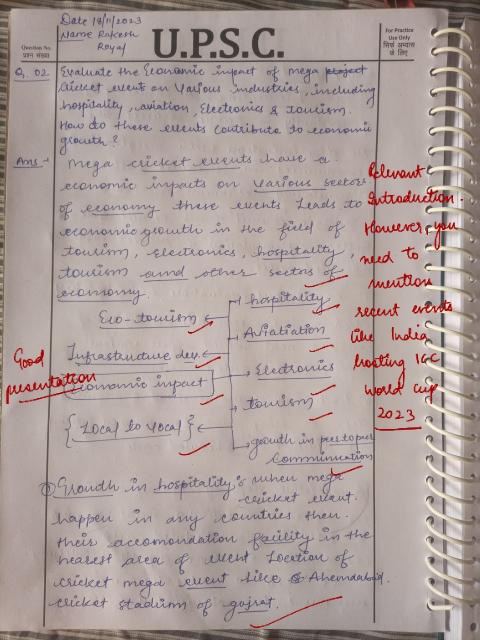 Date 18/11/2023
Name Rakesh
Royal
U.P.S.C.
For Practice
Use Only
सिर्फ अभ्यास
के लिए
Question No.
प्रश्न संख्या
Q. 02
Evaluate the Economic impact of mega project
cricket event on various industries, including
hospitality, aviation, Electronics & tourism.
How do these events contribute to economic
growth?
Ans:-
Mega cricket events have a
economic impacts on various sectors
of economy these events leads to
economic growth in the field of
tourism, electronics, hospitality,
tourism and other sectors of
economy.
Relevant
Introduction.
However, you
need to
mention
recent events
like India
hosting ICC
World Cup
2023
Good
presentation
Eco-tourism
Infrastructure dev.
Economic impact
{Local to Vocal}
hospitality
Aviatiation
Electronics
tourism
growth in
Communication
① Growth in hospitality:- when mega
cricket event.
happen in any countries then.
their accomondation facility in the
nearest area of event Location of
cricket mega event like Ahemdabad.
cricket stadium of gujrat.